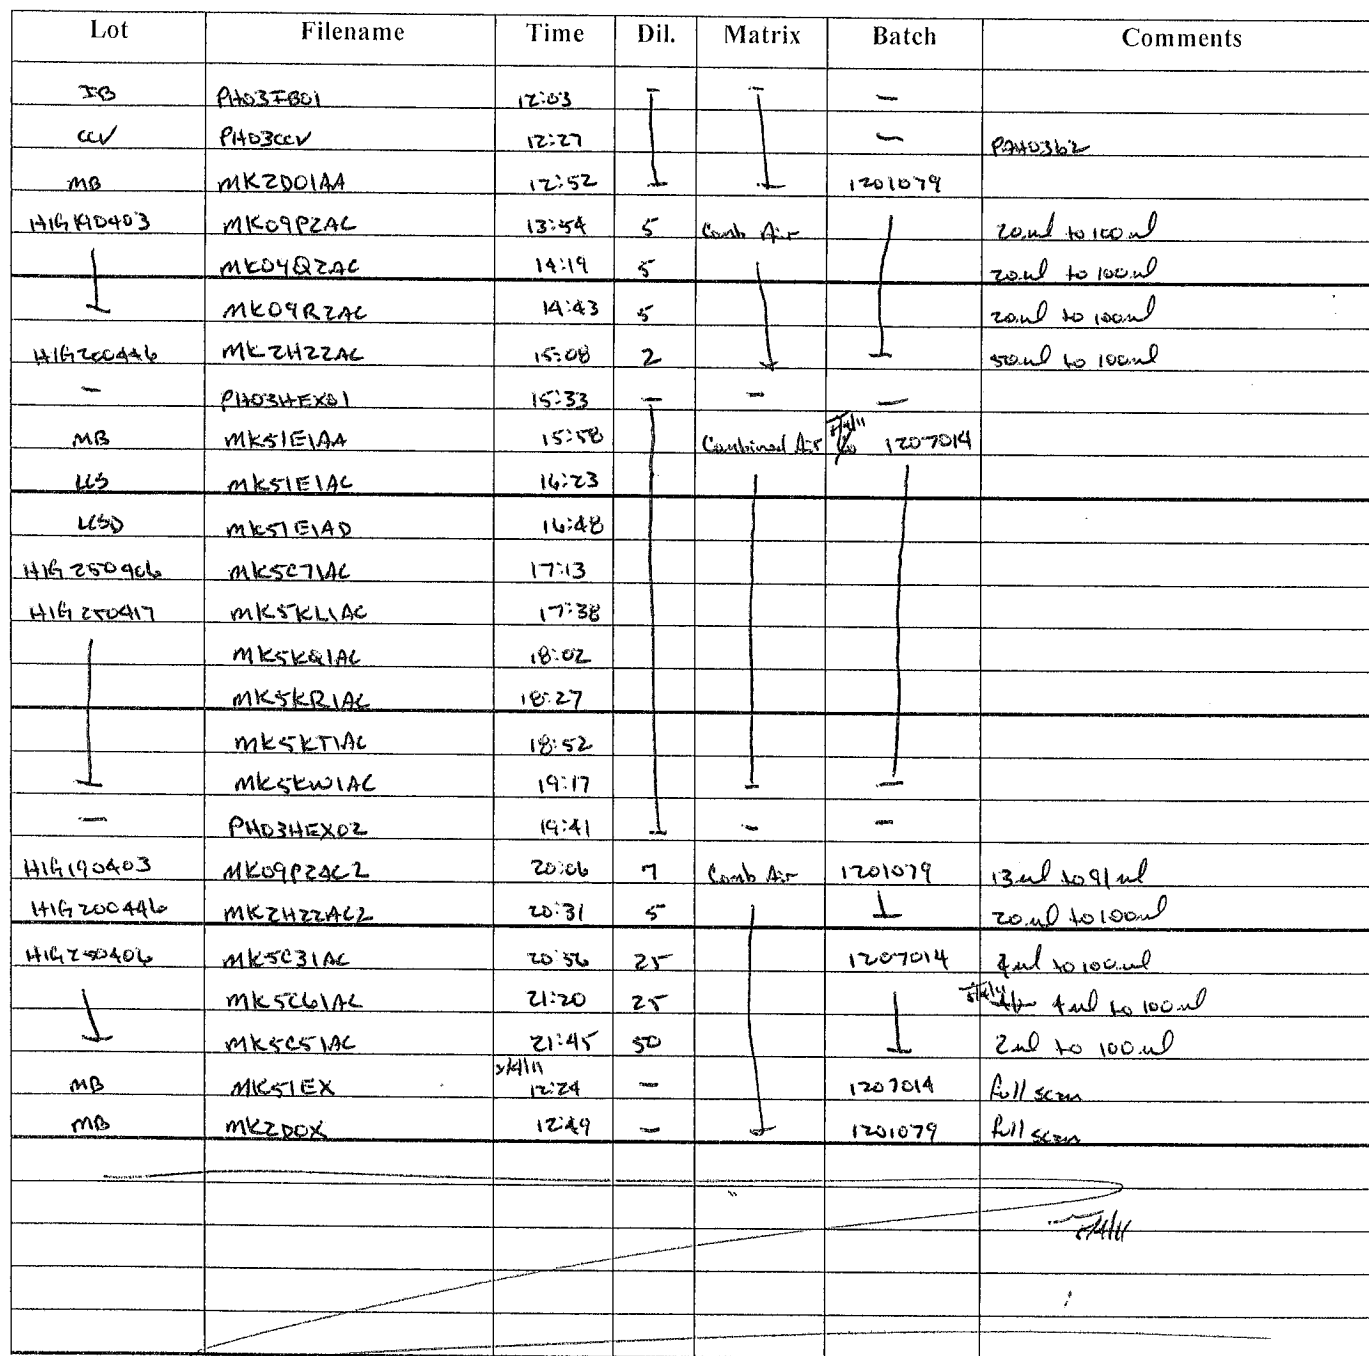 Lot Filename Time Dil. Matrix Batch Comments
IB PH03IB01 12:03 –
CCV PH03CCV 12:27 –
MB MK2D01AA 12:52 1201079
H1G190403 MK09P2AC 13:54 5 Comb Air 20ul to 100ul
MK09Q2AC 14:19 5 20ul to 100ul
MK09R2AC 14:43 5 20ul to 100ul
H1G200446 MK2H22AC 15:08 2 50ul to 100ul
– PH03HEX01 15:33 – – –
MB MK51E1AA 15:58 Combined Air 1207014
LCS MK51E1AC 16:23
LCSD MK51E1AD 16:48
MK5C71AC 17:13
H1G250417 MK5KL1AC 17:38
MK5KQ1AC 18:02
MK5KR1AC 18:27
MK5KT1AC 18:52
MK5KW1AC 19:17
– PH03HEX02 19:41 – –
H1G190403 MK09P2AC2 20:06 7 Comb Air 1201079 13ul to 91ul
H1G200446 MK2H22AC2 20:31 5 20ul to 100ul
H1G250406 MK5C31AC 20:56 25 1207014 4ul to 100ul
MK5C61AC 21:20 25 4ul to 100ul
MK5C51AC 21:45 50 2ul to 100ul
8/4/11
MB MK51EX 12:24 – 1207014 full scan
MB MK2D0X 12:49 – 1201079 full scan
8/4/11